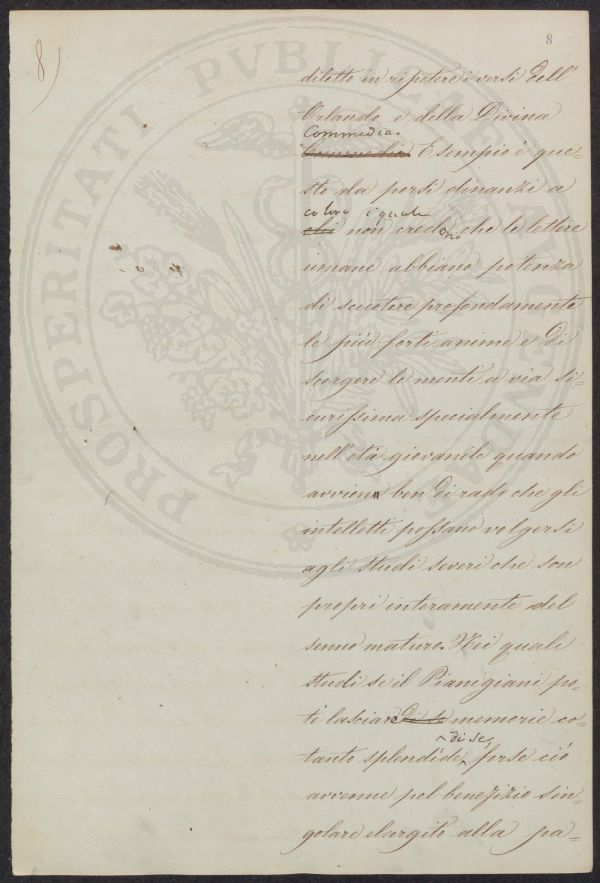 8)
8
diletto in ripetere i versi dell'
Orlando e della Divina
Commedia.
Commedia Esempio è que=
sto da porsi dinanzi a
coloro i quali
chi non credono che le lettere
umane abbiano potenza
di scuotere profondamente
le più forti anime e di
scorgere le menti a via si=
curissima specialmente
nell'età giovanile quando
avvien ben di rado che gli
intelletti possano volgersi
agli studi severi che son
propri interamente del
senno maturo. Nei quali
studi se il Pianigiani po=
té lasciare di se memorie co=
di se,
tanto splendide, forse ciò
avvenne pel benefizio sin=
golare elargito alla pa=
PROSPERITATI PVBLICAE AVGENDAE